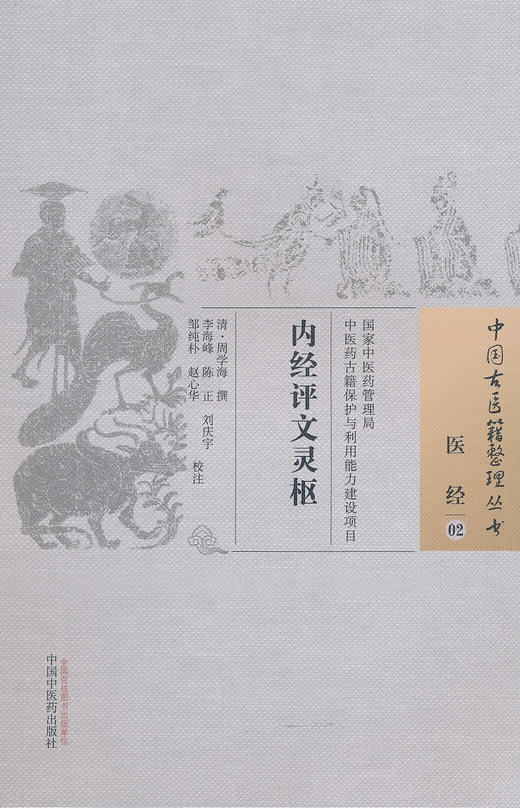 中国古医籍整理丛书
医经
02
国家中医药管理局
中医药古籍保护与利用能力建设项目
内经评文灵枢
清·周学海 撰
李海峰 陈正 刘庆宇
邹纯朴 赵心华 校注
全国百佳图书出版单位
中国中医药出版社